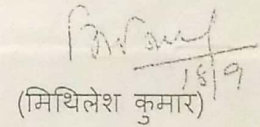 18/9
(मिथिलेश कुमार)